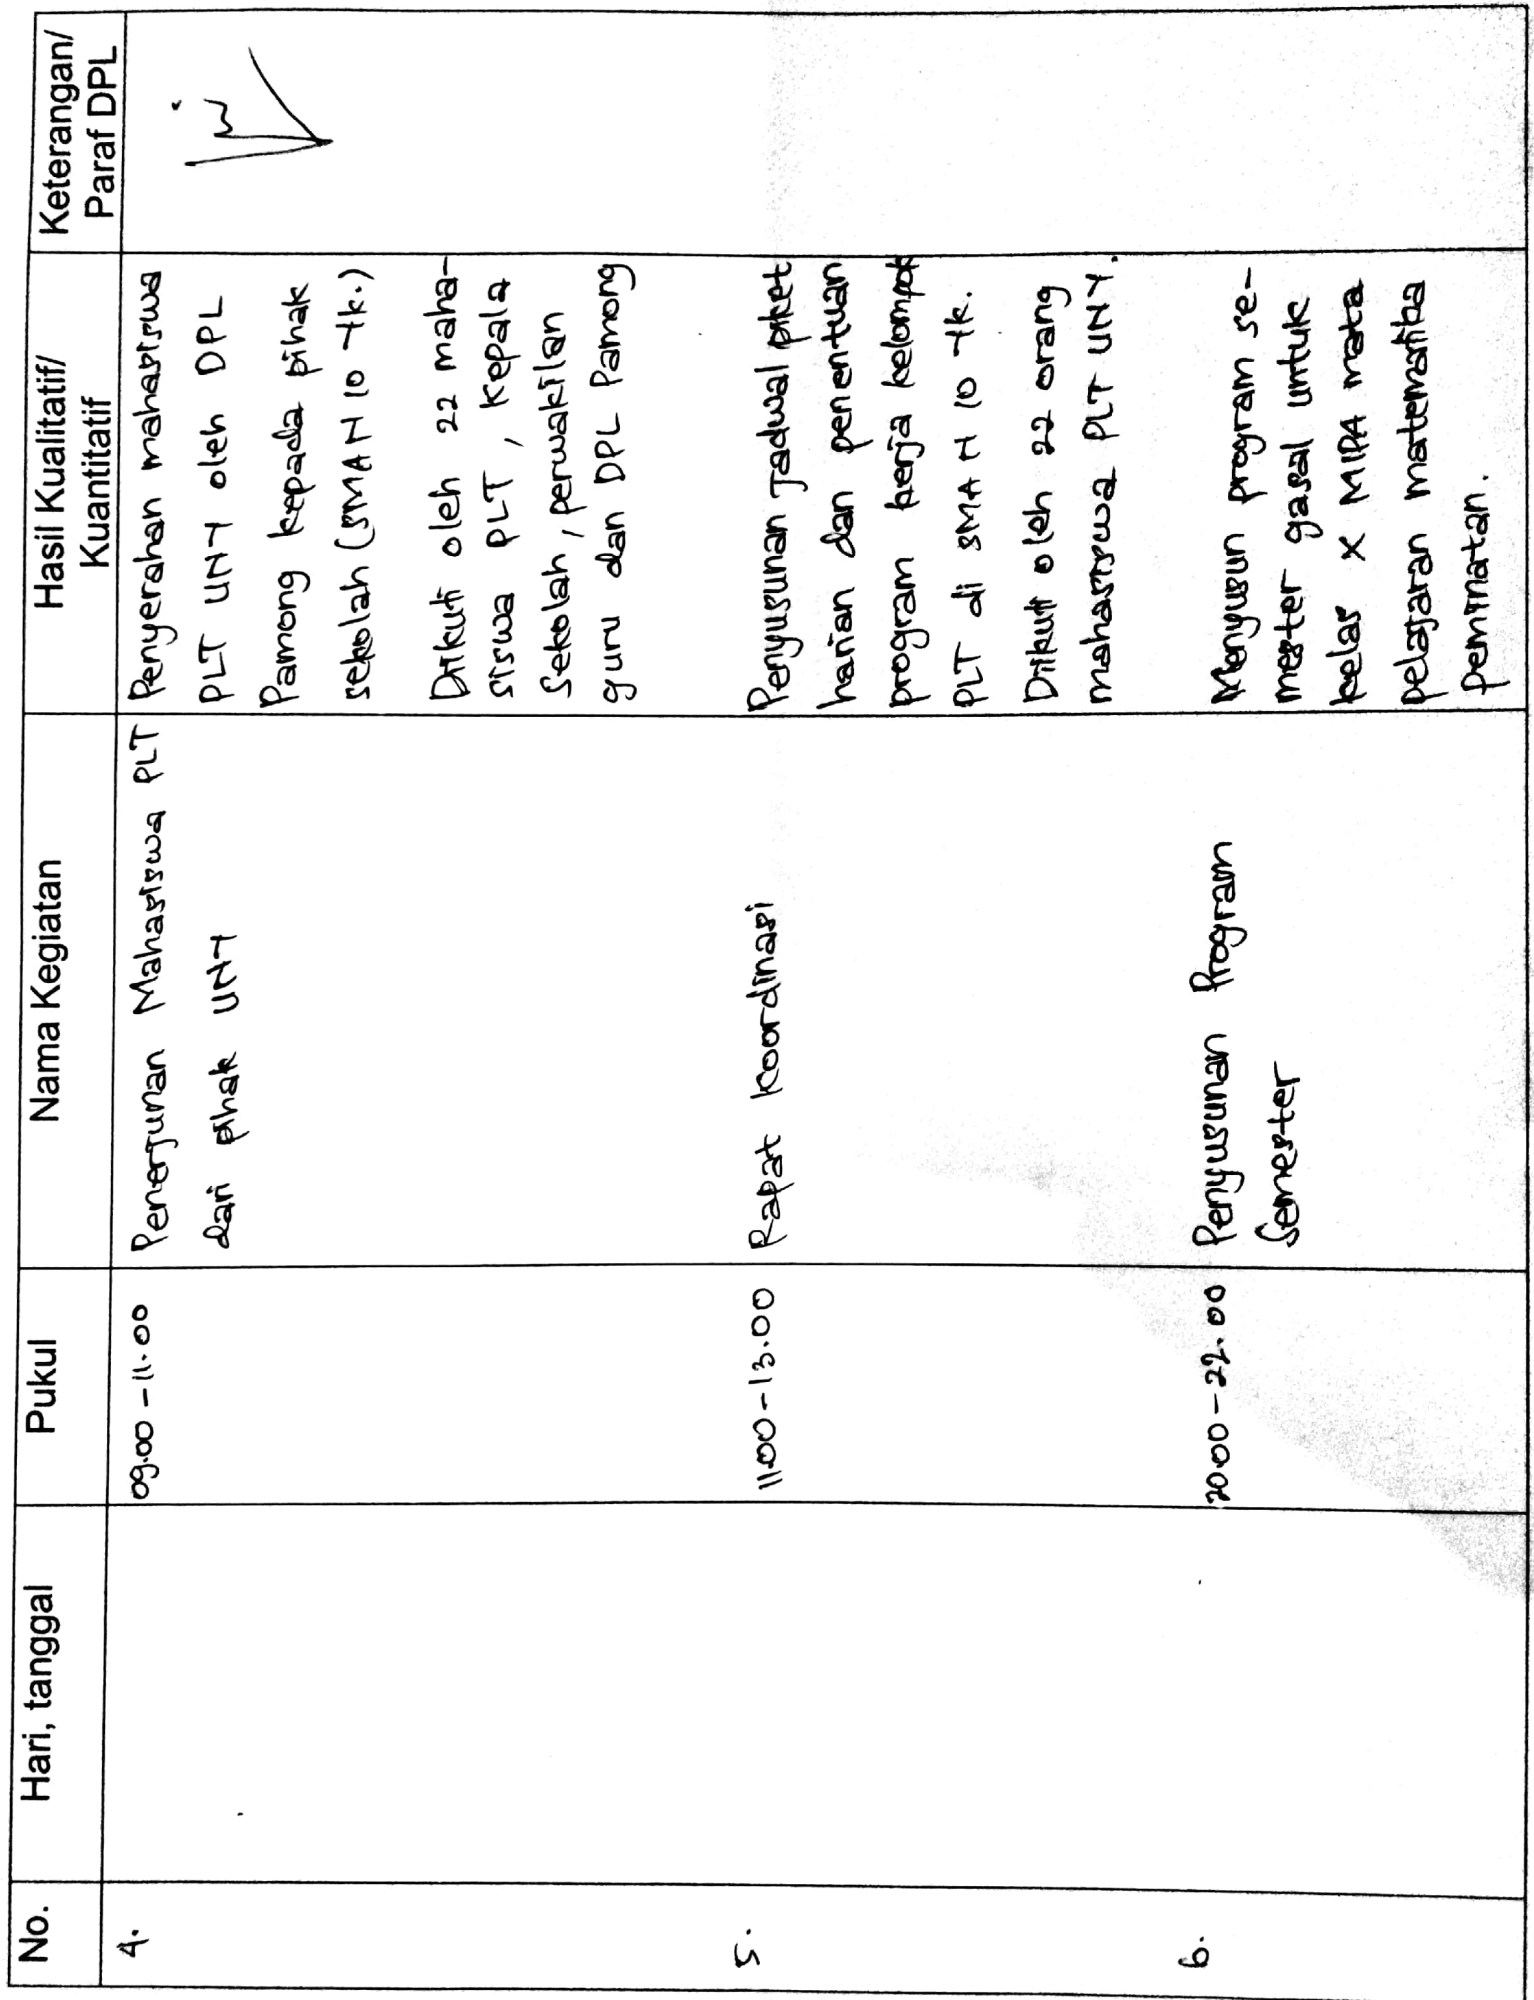 No.
Hari, tanggal
Pukul
Nama Kegiatan
Hasil Kualitatif/
Kuantitatif
Keterangan/
Paraf DPL
4.
09.00 - 11.00
Penerjunan Mahasiswa PLT
dari pihak UNY
Penyerahan mahasiswa
PLT UNY oleh DPL
Pamong kepada pihak
sekolah (SMA N 10 Yk.)
Diikuti oleh 22 maha-
siswa PLT, Kepala
Sekolah, perwakilan
guru dan DPL Pamong
5.
11.00 - 13.00
Rapat Koordinasi
Penyusunan jadwal piket
harian dan penentuan
program kerja kelompok
PLT di SMA N 10 Yk.
Diikuti oleh 22 orang
mahasiswa PLT UNY.
6.
20.00 - 22.00
Penyusunan Program
Semester
Menyusun program se-
mester gasal untuk
kelas X MIPA mata
pelajaran matematika
peminatan.